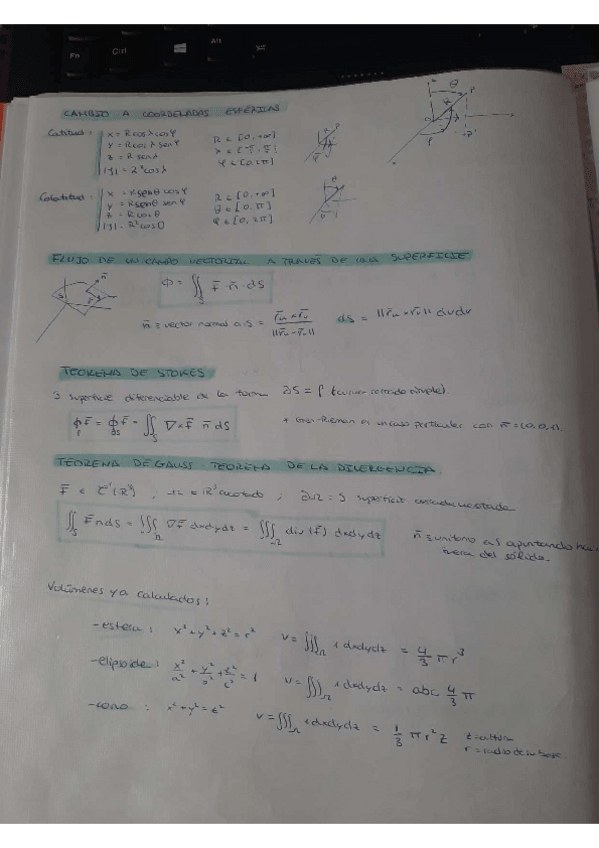 Fn Ctrl Alt
CAMBIO A COORDENADAS ESFÉRICAS
Latitud: x = R cosλ cosφ R ∈ [0, +∞)
y = R cosλ senφ λ ∈ [-π/2, π/2]
z = R senλ φ ∈ [0, 2π]
|J| = R² cosλ
Colatitud: x = R senθ cosφ R ∈ [0, +∞)
y = R senθ senφ θ ∈ [0, π]
z = R cosθ φ ∈ [0, 2π]
|J| = R² cosθ
FLUJO DE UN CAMPO VECTORIAL A TRAVÉS DE UNA SUPERFICIE
Φ = ∬_S F̄ · n̄ · dS
n̄ ≡ vector normal a S = (r̄u × r̄v) / ||r̄u × r̄v|| dS = ||r̄u × r̄v|| du dv
TEOREMA DE STOKES
S superficie diferenciable de la forma ∂S = Γ (curva cerrada simple).
∮_Γ F̄ = ∮_∂S F̄ = ∬_S ∇×F̄ n̄ dS + Green-Rieman es un caso particular con n̄ = (0,0,1).
TEOREMA DE GAUSS TEOREMA DE LA DIVERGENCIA
F̄ ∈ C¹(R³) , Ω ∈ R³ acotado ; ∂Ω = S superficie cerrada acotada
∬_S F̄ n dS = ∭_Ω ∇F̄ dxdydz = ∭_Ω div(F̄) dxdydz n̄ ≡ unitario a S apuntando
fuera del sólido.
Volúmenes ya calculados:
-esfera: x² + y² + z² = r² V = ∭_Ω 1 dxdydz = 4/3 π r³
-elipsoide: x²/a² + y²/b² + z²/c² = 1 V = ∭_Ω 1 dxdydz = abc 4/3 π
-cono: x² + y² = z² V = ∭_Ω 1 dxdydz = 1/3 π r² z z = altura
r = radio de su base.